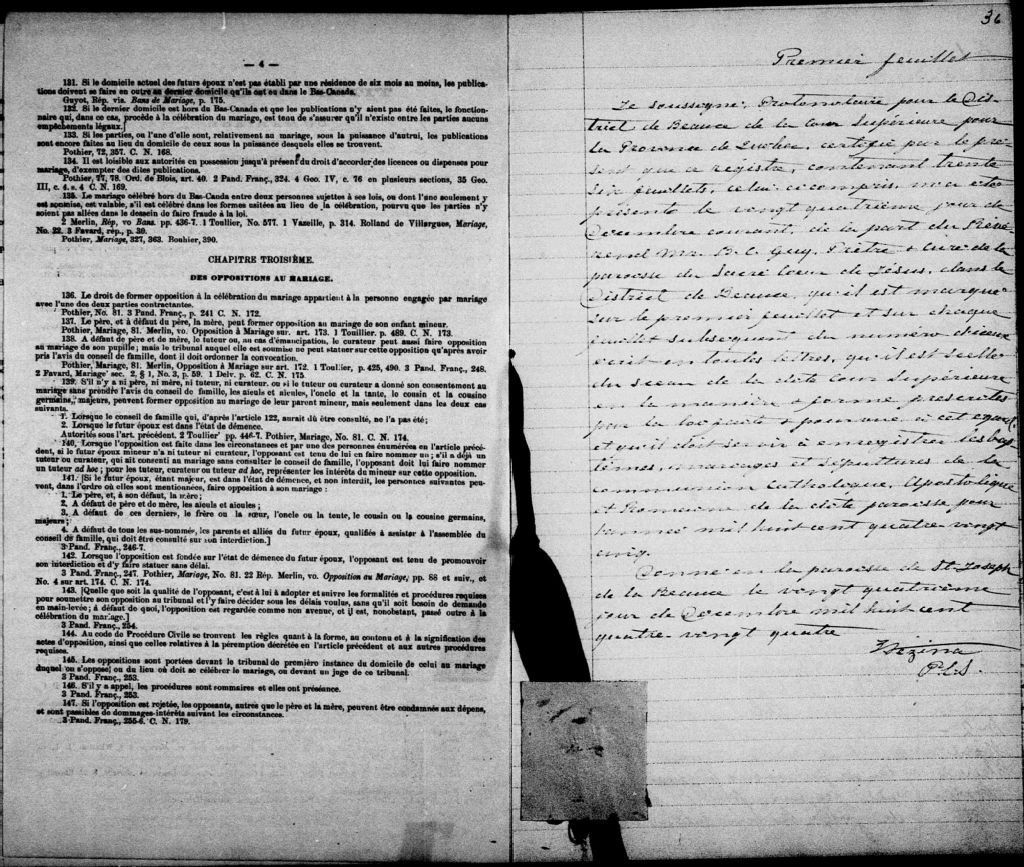 — 4 —
131. Si le domicile actuel des futurs époux n'est pas établi par une résidence de six mois au moins, les publica-
tions doivent se faire en outre au dernier domicile qu'ils ont eu dans le Bas-Canada.
Guyot, Rép. vis. Bans de Mariage, p. 175.
132. Si le dernier domicile est hors du Bas-Canada et que les publications n'y aient pas été faites, le fonctionnai-
re qui, dans ce cas, procède à la célébration du mariage, est tenu de s'assurer qu'il n'existe entre les parties aucuns
empêchements légaux.]
133. Si les parties, ou l'une d'elles sont, relativement au mariage, sous la puissance d'autrui, les publications
sont encore faites au lieu du domicile de ceux sous la puissance desquels elles se trouvent.
Pothier, 72, 357. C. N. 168.
134. Il est loisible aux autorités en possession jusqu'à présent du droit d'accorder des licences ou dispenses pour
mariage, d'exempter des dites publications.
Pothier, 77, 78. Ord. de Blois, art. 40. 2 Pand. Franç., 324. 4 Geo. IV, c. 76 en plusieurs sections, 35 Geo.
III, c. 4. s. 4 C. N. 169.
135. Le mariage célébré hors du Bas-Canada entre deux personnes sujettes à ses lois, ou dont l'une seulement y
est soumise, est valable, s'il est célébré dans les formes usitées au lieu de la célébration, pourvu que les parties n'y
soient pas allées dans le dessein de faire fraude à la loi.
2 Merlin, Rép, vo Bans. pp. 436-7. 1 Toullier, No. 577. 1 Vazeille, p. 314. Rolland de Villargues, Mariage,
No. 22. 3 Favard, rép., p. 39.
Pothier, Mariage, 327, 363. Bouhier, 390.
CHAPITRE TROISIÈME.
DES OPPOSITIONS AU MARIAGE.
136. Le droit de former opposition à la célébration du mariage appartient à la personne engagée par mariage
avec l'une des deux parties contractantes.
Pothier, No. 81. 3 Pand. Franç., p. 241 C. N. 172.
137. Le père, et à défaut du père, la mère, peut former opposition au mariage de son enfant mineur.
Pothier, Mariage, 81. Merlin, vo. Opposition à Mariage sur. art. 173. 1 Touillier. p. 489. C. N. 173.
138. A défaut de père et de mère, le tuteur ou, au cas d'émancipation, le curateur peut aussi faire opposition
au mariage de son pupille; mais le tribunal auquel elle est soumise ne peut statuer sur cette opposition qu'après avoir
pris l'avis du conseil de famille, dont il doit ordonner la convocation.
Pothier, Mariage, 81. Merlin, Opposition à Mariage sur art. 172. 1 Toullier, p. 425, 490. 3 Pand. Franç., 248.
2 Favard, Mariage' sec. 2, § 1, No. 3, p. 59. 1 Delv. p. 62. C. N. 175.
139. S'il n'y a ni père, ni mère, ni tuteur, ni curateur, ou si le tuteur ou curateur a donné son consentement au
mariage sans prendre l'avis du conseil de famille, les aïeuls et aïeules, l'oncle et la tante, le cousin et la cousine
germains, majeurs, peuvent former opposition au mariage de leur parent mineur, mais seulement dans les deux cas
suivants.
1. Lorsque le conseil de famille qui, d'après l'article 122, aurait dû être consulté, ne l'a pas été;
2. Lorsque le futur époux est dans l'état de démence.
Autorités sous l'art. précédent. 2 Toullier' pp. 446-7. Pothier, Mariage, No. 81. C. N. 174.
140. Lorsque l'opposition est faite dans les circonstances et par une des personnes énumérées en l'article précé-
dent, si le futur époux mineur n'a ni tuteur ni curateur, l'opposant est tenu de lui en faire nommer un; s'il a déjà un
tuteur ou curateur, qui ait consenti au mariage sans consulter le conseil de famille, l'opposant doit lui faire nommer
un tuteur ad hoc; pour les tuteur, curateur ou tuteur ad hoc, représenter les intérêts du mineur sur cette opposition.
141. [Si le futur époux, étant majeur, est dans l'état de démence, et non interdit, les personnes suivantes peu-
vent, dans l'ordre où elles sont mentionnées, faire opposition à son mariage :
1. Le père, et, à son défaut, la mère;
2. A défaut de père et de mère, les aïeuls et aïeules;
3. A défaut de ces derniers, le frère ou la sœur, l'oncle ou la tente, le cousin ou la cousine germains,
majeurs;
4. A défaut de tous les sus-nommés, les parents et alliés du futur époux, qualifiés à assister à l'assemblée du
conseil de famille, qui doit être consulté sur son interdiction.]
3 Pand. Franç., 246-7.
142. Lorsque l'opposition est fondée sur l'état de démence du futur époux, l'opposant est tenu de promouvoir
son interdiction et d'y faire statuer sans délai.
3 Pand. Franç., 247. Pothier, Mariage, No. 81. 22 Rép. Merlin, vo. Opposition au Mariage, pp. 88 et suiv., et
No. 4 sur art. 174. C. N. 174.
143. [Quelle que soit la qualité de l'opposant, c'est à lui à adopter et suivre les formalités et procédures requises
pour soumettre son opposition au tribunal et l'y faire décider sous les délais voulus, sans qu'il soit besoin de demande
en main-levée; à défaut de quoi, l'opposition est regardée comme non avenue, et il est, nonobstant, passé outre à la
célébration du mariage.]
3 Pand. Franç., 254.
144. Au code de Procédure Civile se trouvent les règles quant à la forme, au contenu et à la signification des
actes d'opposition, ainsi que celles relatives à la péremption décrétée en l'article précédent et aux autres procédures
requises.
145. Les oppositions sont portées devant le tribunal de première instance du domicile de celui au mariage
duquel on s'oppose, ou du lieu où doit se célébrer le mariage, ou devant un juge de ce tribunal.
3 Pand. Franç., 253.
146. S'il y a appel, les procédures sont sommaires et elles ont préséance.
3 Pand. Franç., 253.
147. Si l'opposition est rejetée, les opposants, autres que le père et la mère, peuvent être condamnés aux dépens,
et sont passibles de dommages-intérêts suivant les circonstances.
3 Pand. Franç., 255-6. C. N. 179.
36
Premier feuillet
Je soussigné, Protonotaire pour le Dis-
trict de Beauce de la Cour Supérieure pour
la Province de Québec, certifie par le pré-
sent que ce registre, contenant trente
six feuillets, celui ci compris, m'a été
présenté le vingt quatrième jour de
Décembre courant, de la part du Révé-
rend Mr. B. C. Guy, Prêtre & Curé de la
paroisse du Sacré Coeur de Jésus, dans le
District de Beauce, qu'il est marqué
sur le premier feuillet et sur chaque
feuillet subséquent du numéro d'iceux
écrit en toutes lettres, qu'il est scellé
du sceau de la dite Cour Supérieure
en la manière et forme prescrites
par la loi faite & pourvue à cet égard
et qu'il doit servir à enregistrer les bap
têmes, mariages et sépultures de la
communion Catholique, Apostolique
et Romaine de la dite paroisse pour
l'année mil huit cent quatre vingt
cinq.
Donné en la paroisse de St. Joseph
de la Beauce le vingt quatrième
jour de Décembre mil huit cent
quatre-vingt quatre
Vézina
P.C.S.